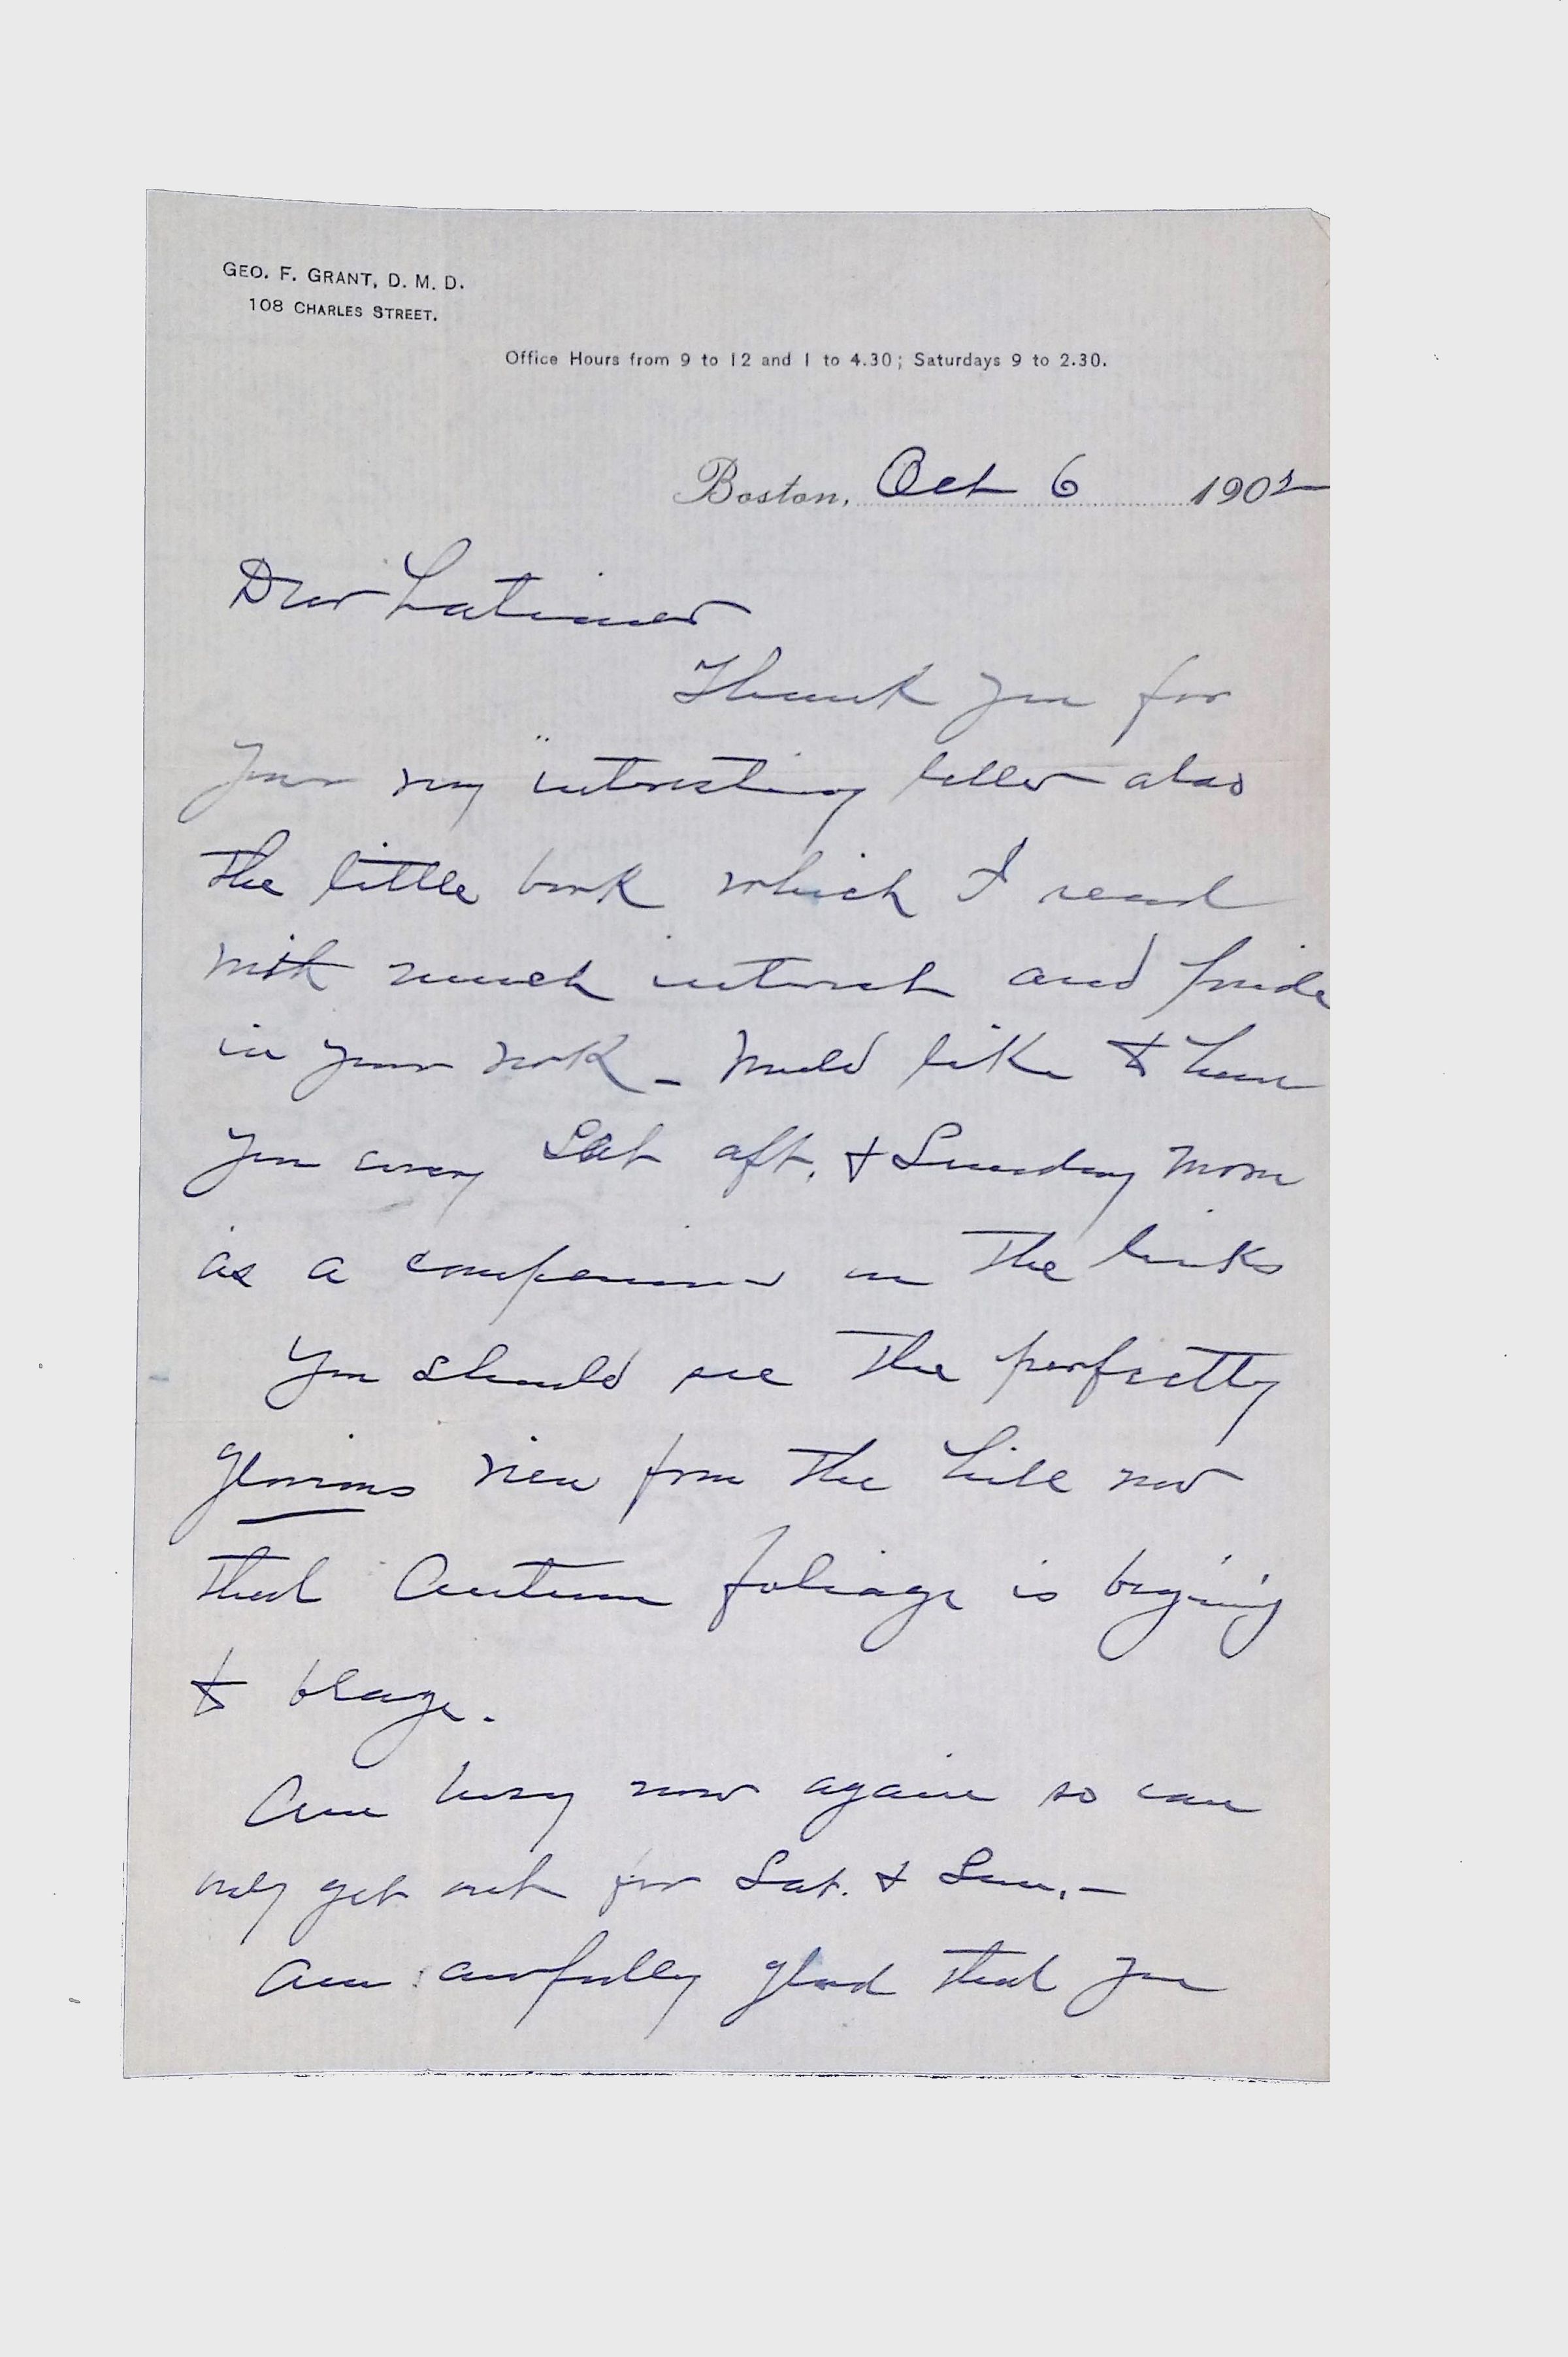 GEO. F. GRANT, D. M. D.
108 CHARLES STREET.
Office Hours from 9 to 12 and 1 to 4.30; Saturdays 9 to 2.30.
Boston, Oct 6 1902
Dear Latimer
Thank you for
your very interesting letter also
the little book which I read
with much interest and pride
in your work - Would like to have
you every Sat aft. & Sunday morn
as a companion on the links
You should see the perfectly
glorious view from the hill now
that Autumn foliage is begining
to blaze.
Am busy now again so can
only get out for Sat. & Sun. -
Am awfully glad that you